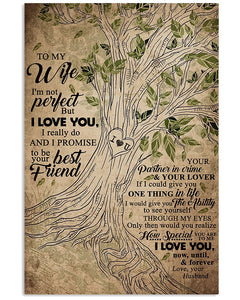 TO MY
Wife
I'm not
perfect
But
I LOVE YOU,
I really do
AND I PROMISE
to be
your best
Friend
YOUR
Partner in crime
& YOUR LOVER
If I could give you
ONE THING in LIFE
I would give you The Ability
to see yourself
THROUGH MY EYES
Only then would you realize
How Special YOU ARE TO ME
I LOVE YOU,
now, until,
& forever
Love, your
Husband